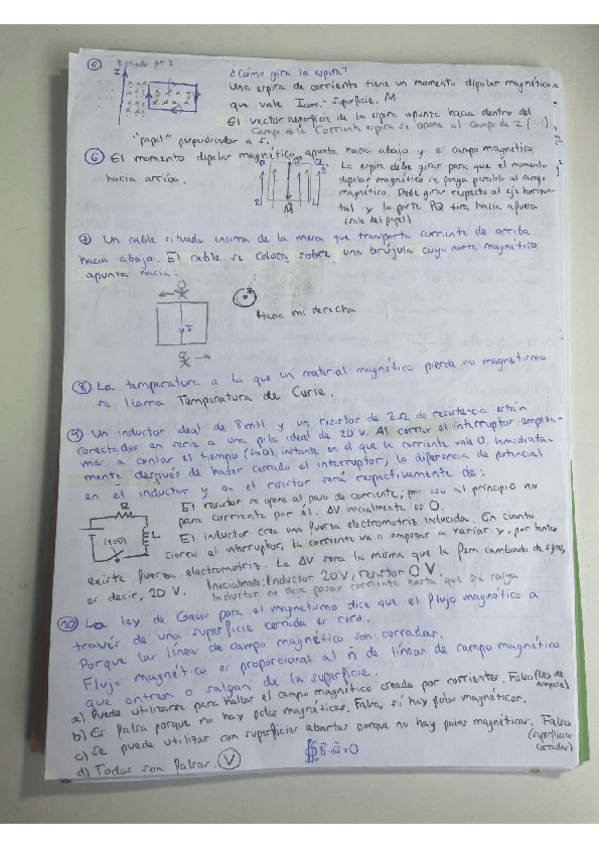 ⑤ B creado por I
I
¿Cómo gira la espira?
Una espira de corriente tiene un momento dipolar magnético
que vale Icorr. · superficie. M
El vector superficie de la espira apunta hacia dentro del
Campo de la corriente espira se opone al campo de I
"papel" perpendicular a
⑥ El momento dipolar magnético apunta hacia abajo y el campo magnético
hacia arriba.
La espira debe girar para que el momento
dipolar magnético se ponga paralelo al campo
magnético. Debe girar respecto al eje horizon-
tal y la parte PQ tira hacia afuera
(sale del papel)
M
⑦ Un cable situado encima de la mesa que transporta corriente de arriba
hacia abajo. El cable se coloca sobre una brújula cuyo norte magnético
apunta hacia:
I
Hacia mi derecha
⑧ La temperatura a la que un material magnético pierde su magnetismo
se llama Temperatura de Curie.
⑨ Un inductor ideal de 8mH y un resistor de 2 Ω de resistencia están
conectados en serie a una pila ideal de 20 V. Al cerrar el interruptor empeza-
mos a contar el tiempo (t=0), instante en el que la corriente vale 0. Inmediata-
mente después de haber cerrado el interruptor, la diferencia de potencial
en el inductor y en el resistor será respectivamente de:
El resistor se opone al paso de corriente, por eso al principio no
pasa corriente por él. ΔV inicialmente es 0.
El inductor crea una fuerza electromotriz inducida. En cuanto
cierro el interruptor, la corriente va a empezar a variar y, por tanto
R
L
(t=0)
existe fuerza electromotriz. La ΔV será la misma que la fem cambiada de signo,
es decir, 20 V. Inicialmente: Inductor 20V, resistor 0 V.
Inductor no deja pasar corriente hasta que
⑩ La ley de Gauss para el magnetismo dice que el flujo magnético a
través de una superficie cerrada es cero.
Porque las líneas de campo magnético son cerradas.
Flujo magnético es proporcional al nº de líneas de campo magnético
que entren o salgan de la superficie.
a) Puede utilizarse para hallar el campo magnético creado por corrientes. Falso (ley de
ampere)
b) Es falsa porque no hay polos magnéticos. Falsa, sí hay polos magnéticos.
c) Se puede utilizar con superficies abiertas porque no hay polos magnéticos. Falso
(superficies
cerradas)
d) Todas son falsas. Ⓥ ∯ B⃗·ds⃗ = 0